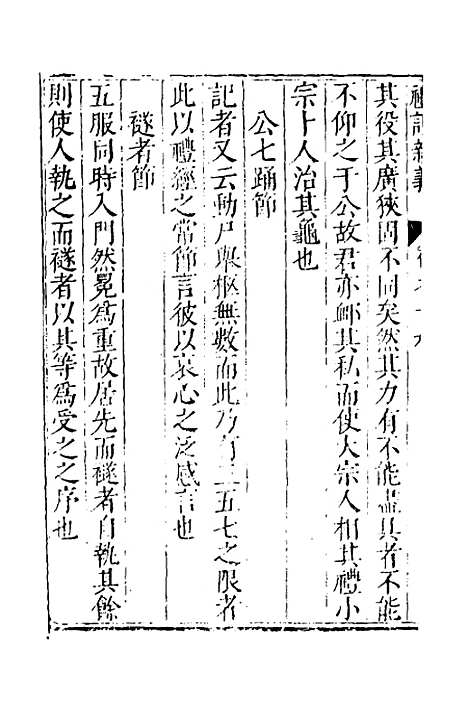 禮記新義 卷之十九
其役其廣狹固不同矣然其力有不能盡具者不能
不仰之于公故君亦䘏其私而使大宗人相其禮小
宗卜人治其龜也
公七踊節
記者又云動尸舉柩無數而此乃有三五七之限者
此以禮經之常節言彼以哀心之泛感言也
襚者節
五服同時入門然冕為重故居先而襚者自執其餘
則使人執之而襚者以其等為受之之序也